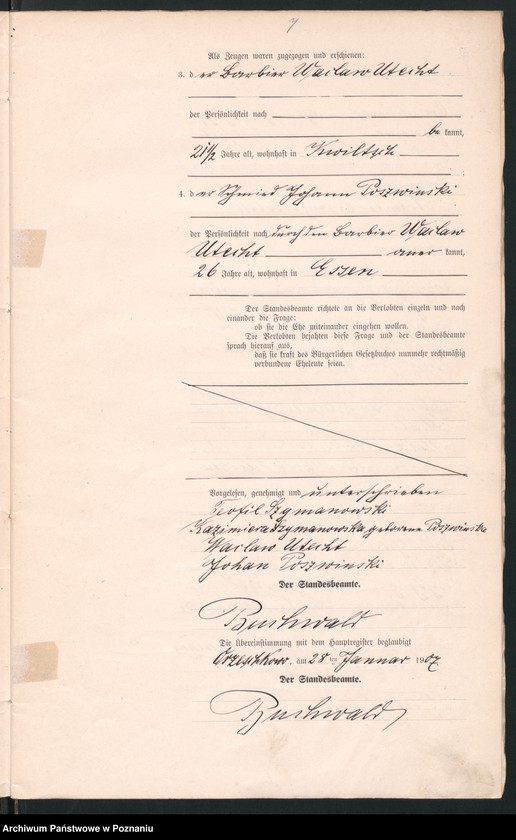 7
Als Zeugen waren zugezogen und erschienen:
3. der Barbier Waclaw Utecht
der Persönlichkeit nach
be kannt,
21 1/2 Jahre alt, wohnhaft in Kwiltsch
4. der Schmied Johann Poszwinski
der Persönlichkeit nach durch den Barbier Waclaw
Utecht aner kannt,
26 Jahre alt, wohnhaft in Essen
Der Standesbeamte richtete an die Verlobten einzeln und nach
einander die Frage:
ob sie die Ehe miteinander eingehen wollen.
Die Verlobten bejahten diese Frage und der Standesbeamte
sprach hierauf aus,
daß sie kraft des Bürgerlichen Gesetzbuches nunmehr rechtmäßig
verbundene Eheleute seien.
Vorgelesen, genehmigt und unterschrieben
Teofil Szymanowski
Kazimiera Szymanowska geborene Poszwinska
Waclaw Utecht
Johan Poszwinski
Der Standesbeamte.
Buchwald
Die Übereinstimmung mit dem Hauptregister beglaubigt
Orzeschkowo, am 28 ten Januar 1907
Der Standesbeamte.
Buchwald
Archiwum Państwowe w Poznaniu